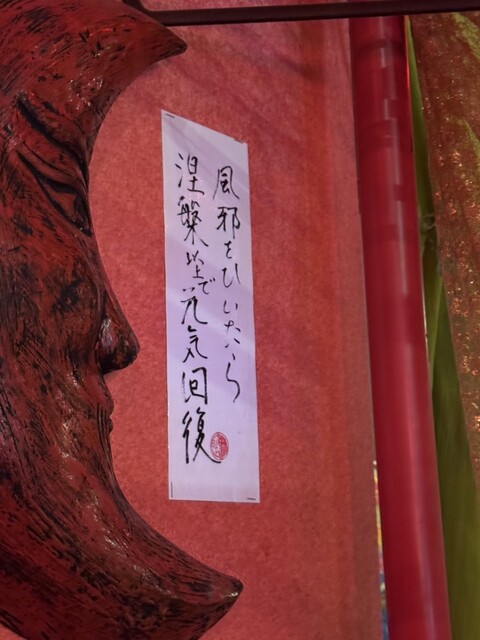 風邪をひいたら
涅槃坐で元気回復